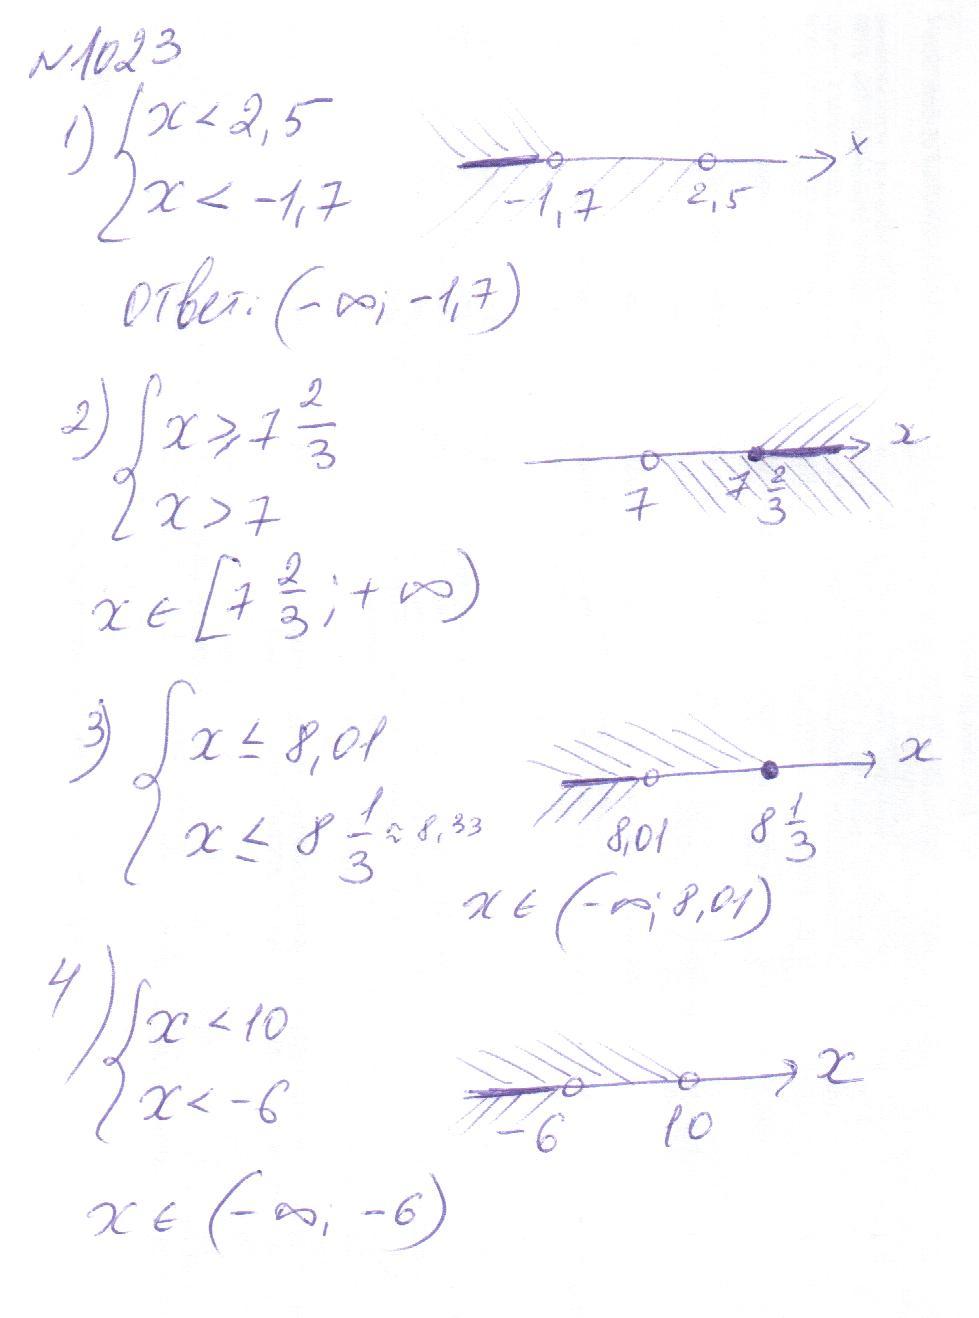 N1023
1) { x < 2,5
x < -1,7
-1,7 2,5 x
Ответ: (-∞; -1,7)
2) { x ≥ 7 2/3
x > 7
7 7 2/3 x
x ∈ [7 2/3; +∞)
3) { x ≤ 8,01
x ≤ 8 1/3 ≈ 8,33
8,01 8 1/3 x
x ∈ (-∞; 8,01)
4) { x < 10
x < -6
-6 10 x
x ∈ (-∞; -6)